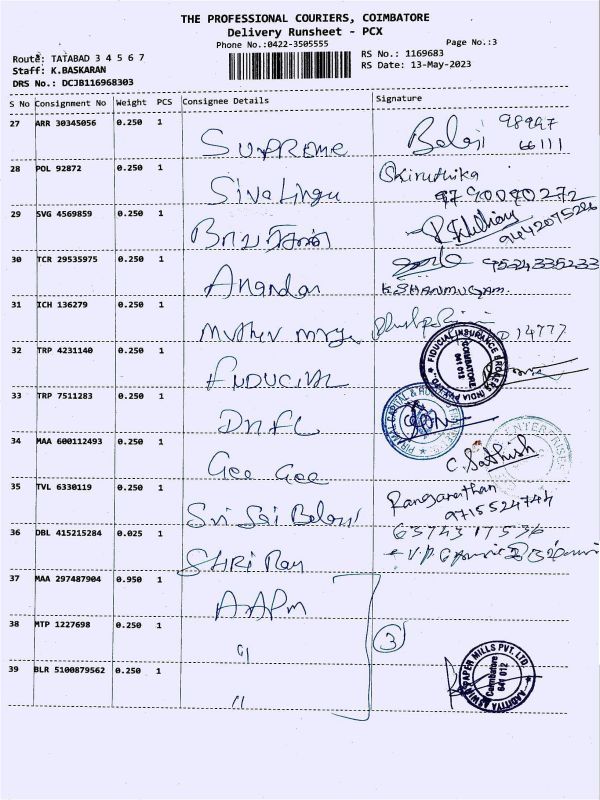 THE PROFESSIONAL COURIERS, COIMBATORE
Delivery Runsheet - PCX
Phone No.:0422-3505555
Page No.:3
Route: TATABAD 3 4 5 6 7
RS No.: 1169683
Staff: K.BASKARAN
RS Date: 13-May-2023
DRS No.: DCJB116968303
S No Consignment No Weight PCS Consignee Details Signature
27 ARR 30345056 0.250 1 SUPREME Balaji 98947 66111
28 POL 92872 0.250 1 Sivalingu Kiruthika 9790090272
29 SVG 4569859 0.250 1
30 TCR 29535975 0.250 1 Anandan 9524335233
K.SHANMUGAM.
31 ICH 136279 0.250 1 14777
32 TRP 4231140 0.250 1 FIDUCIAL FIDUCIAL INSURANCE BROKERS INDIA COIMBATORE 641 012
33 TRP 7511283 0.250 1 DHFL PIRAMAL CAPITAL &
34 MAA 600112493 0.250 1 Gee Gee C. Sathish ENTERPRISES
35 TVL 6330119 0.250 1 Sri Sai Balaji Rangarathan
9715524744
36 DBL 415215284 0.025 1 SHRI Ram 6374317536
37 MAA 297487904 0.950 1 AAPM
38 MTP 1227698 0.250 1 " 3
39 BLR 5100879562 0.250 1 " AADITYA ASWIN PAPER MILLS PVT. LTD. Coimbatore 641 012